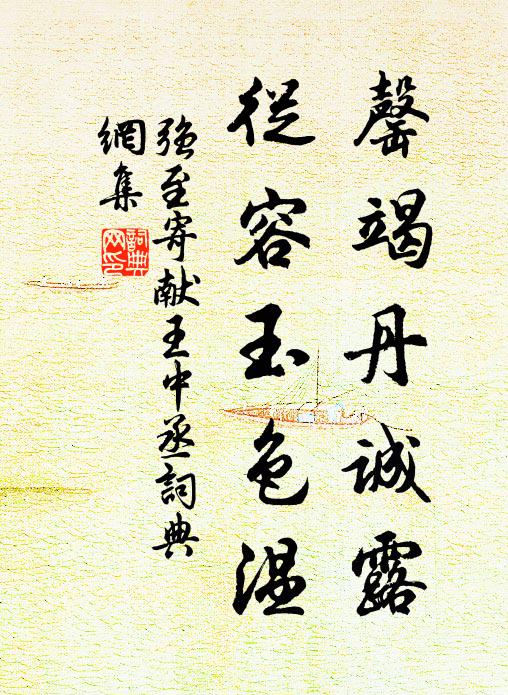 罄竭丹誠露
從容玉色温
强至寄献王中丞詞典
網集
詞典
网印